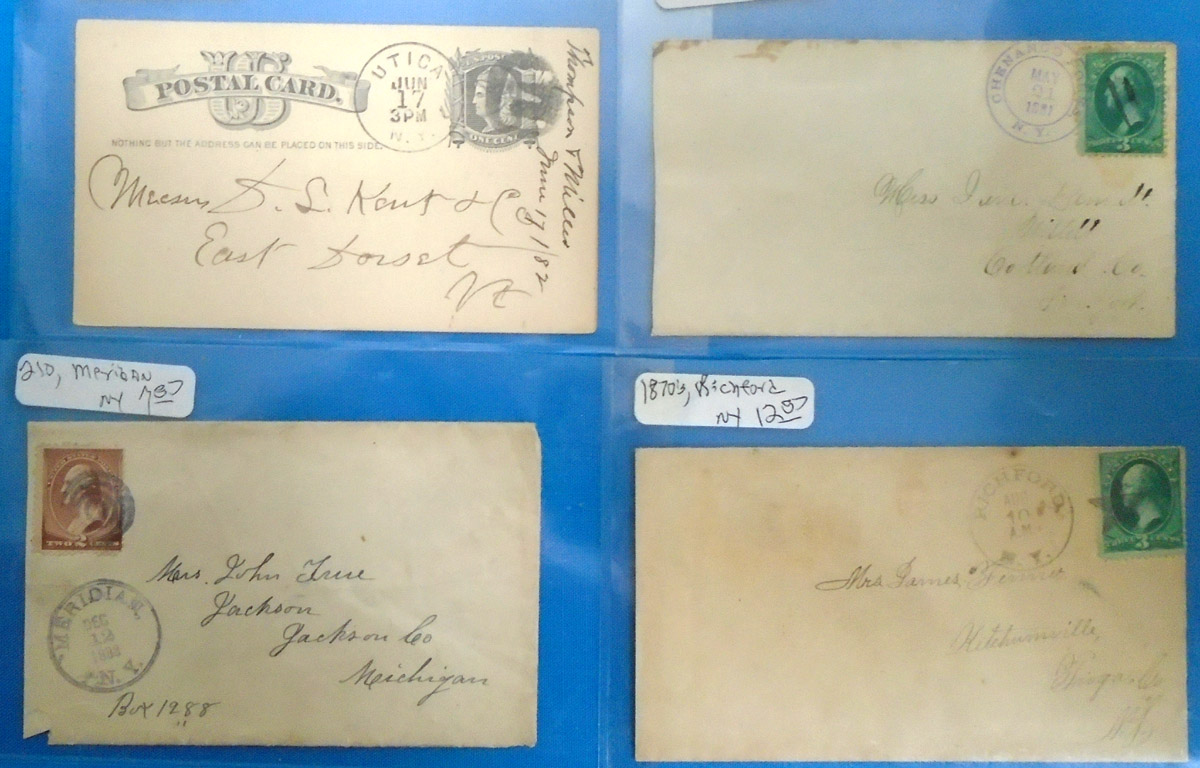 US
POSTAL CARD.
NOTHING BUT THE ADDRESS CAN BE PLACED ON THIS SIDE.
UTICA
JUN
17
3PM
N.Y.
ONE CENT
Messrs D. S. Kent & Co
East Dorset
Vt
Thompson & Miller
June 17/82
MAY
21
1881
N.Y.
3
Miss
Co
210, Meridian
NY 7.50
TWO 2 CENTS
MERIDIAN.
DEC
12
N.Y.
Mrs. John True
Jackson
Jackson Co
Michigan
Box 1288
1870's, Richford
NY 12.50
RICHFORD
10
A.M.
N.Y.
3
Mrs James
Ketchumville,
Tioga Co
N.Y.